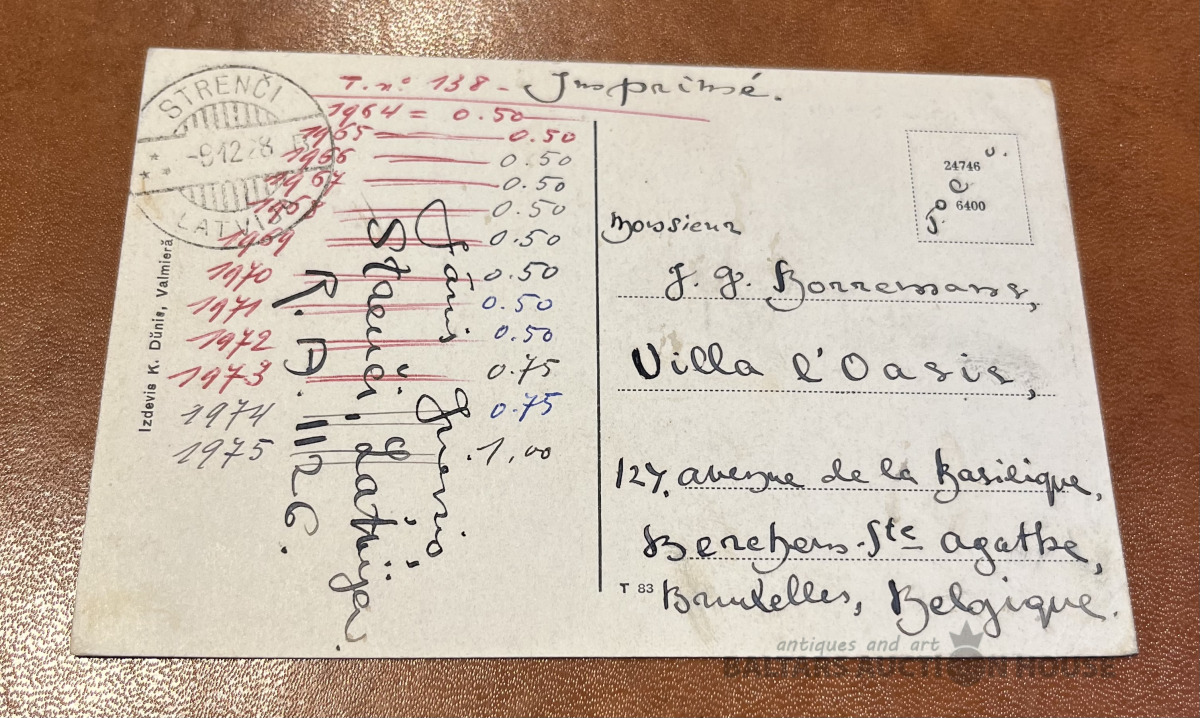 STRENČI
-9 12 28
LATVIJA
T. n° 138 - Imprimé.
1964 = 0.50
1965 0.50
1966 0.50
1967 0.50
1968 0.50
1969 0.50
1970 0.50
1971 0.50
1972 0.50
1973 0.75
1974 0.75
1975 1,00
Jānis
Strenči, Latvija
R. A. 1126.
Izdevis K. Dūnis, Valmierā
24746
6400
Monsieur
J. G. Borremans,
Villa l'Oasis,
127, avenue de la Basilique,
Berchem-Ste agathe,
T 83
Bruxelles, Belgique.
antiques and art
BALTARS AUCTION HOUSE